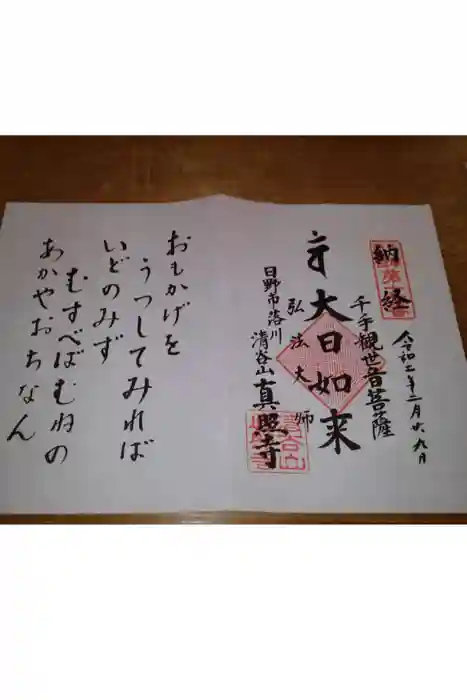 納経
令和二年二月廿九日
千手觀世音菩薩
大日如来
弘法大師
日野市落川
清谷山真照寺
おもかげを
うつしてみれば
いどのみず
むすべばむねの
あかやおちなん